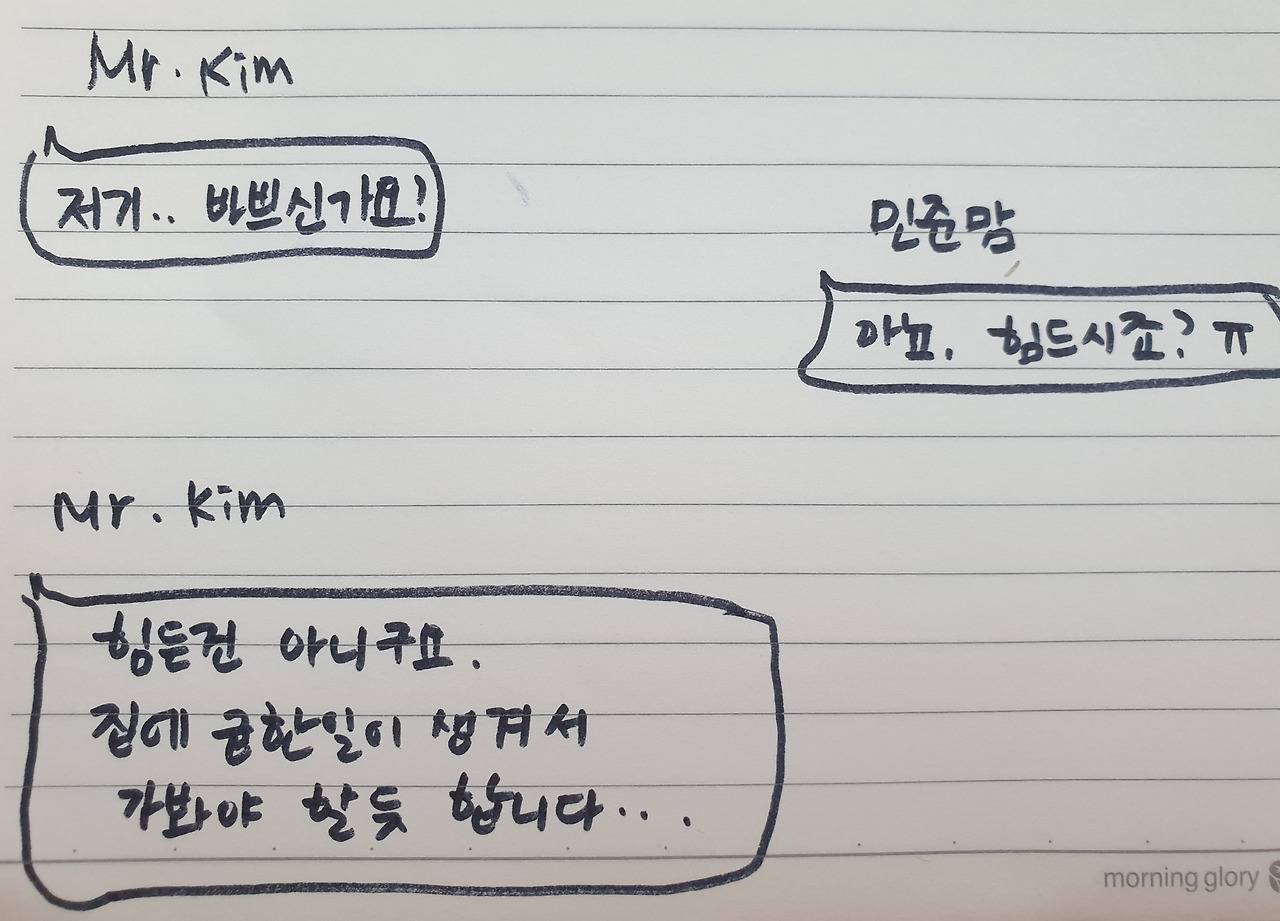 Mr. Kim
저기.. 바쁘신가요?
민준맘
아뇨. 힘드시죠? ㅠ
Mr. Kim
힘든건 아니구요.
집에 급한일이 생겨서
가봐야 할듯 합니다...
morning glory